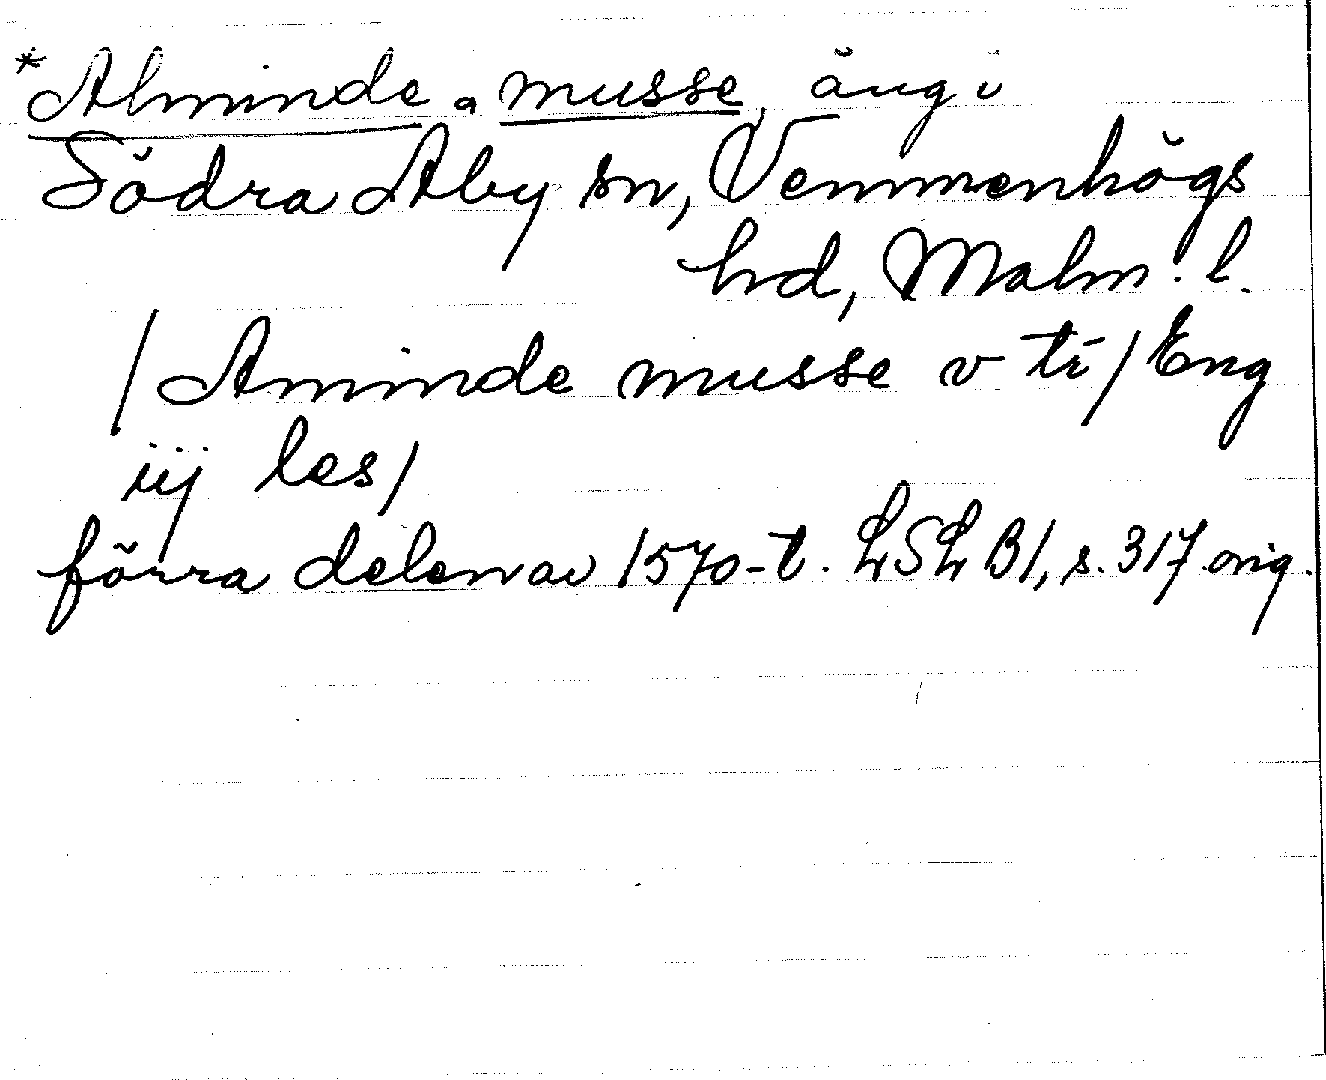 *Alminde, musse, äng i
Södra Åby sn, Vemmenhögs
hd, Malm. l.
/Aminde musse v ti/ Eng
iij les/
förra delen av 1570-t. LSLB1, s. 317 orig.